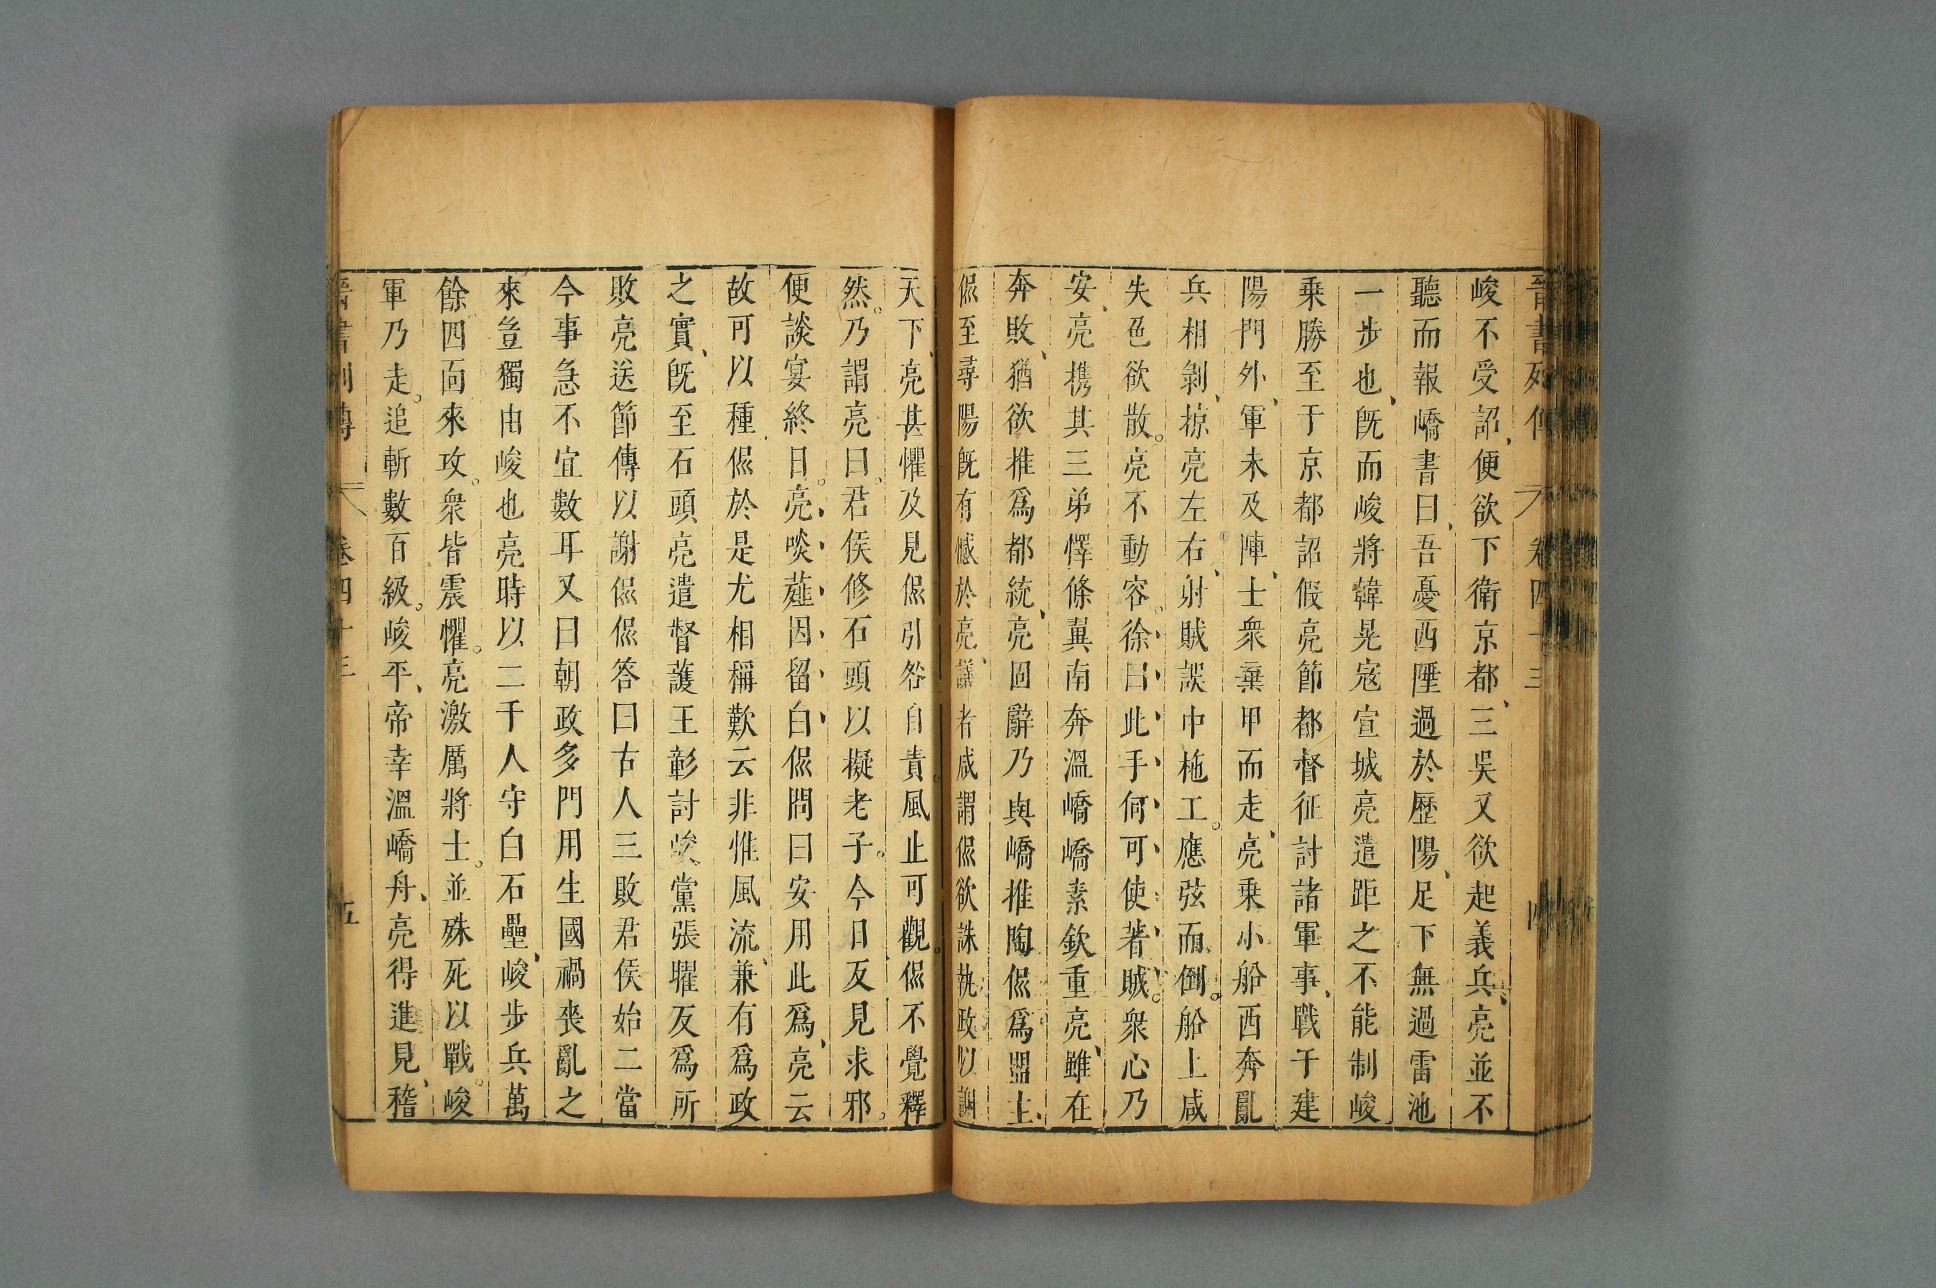 晉書列傳 卷四十三 四
峻不受詔便欲下衛京都三吳又欲起義兵亮並不
聽而報嶠書曰吾憂西陲過於歷陽足下無過雷池
一步也旣而峻將韓晃寇宣城亮遣距之不能制峻
乗勝至于京都詔假亮節都督征討諸軍事戰于建
陽門外軍未及陣士衆棄甲而走亮乗小船西奔亂
兵相剝掠亮左右射賊誤中柂工應弦而倒船上咸
失色欲散亮不動容徐曰此手何可使著賊衆心乃
安亮携其三弟懌條翼南奔溫嶠嶠素欽重亮雖在
奔敗猶欲推爲都統亮固辭乃與嶠推陶侃爲盟主
侃至尋陽旣有憾於亮議者咸謂侃欲誅執政以謝
天下亮甚懼及見侃引咎自責風止可觀侃不覺釋
然乃謂亮曰君侯修石頭以擬老子今日反見求邪
便談宴終日亮啖薤因留白侃問曰安用此爲亮云
故可以種侃於是尤相稱歎云非惟風流兼有爲政
之實旣至石頭亮遣督護王彰討峻黨張曜反爲所
敗亮送節傳以謝侃侃答曰古人三敗君侯始二當
今事急不宜數耳又曰朝政多門用生國禍喪亂之
來豈獨由峻也亮時以二千人守白石壘峻步兵萬
餘四面來攻衆皆震懼亮激厲將士並殊死以戰峻
軍乃走追斬數百級峻平帝幸溫嶠舟亮得進見稽
晉書列傳 卷四十三 五